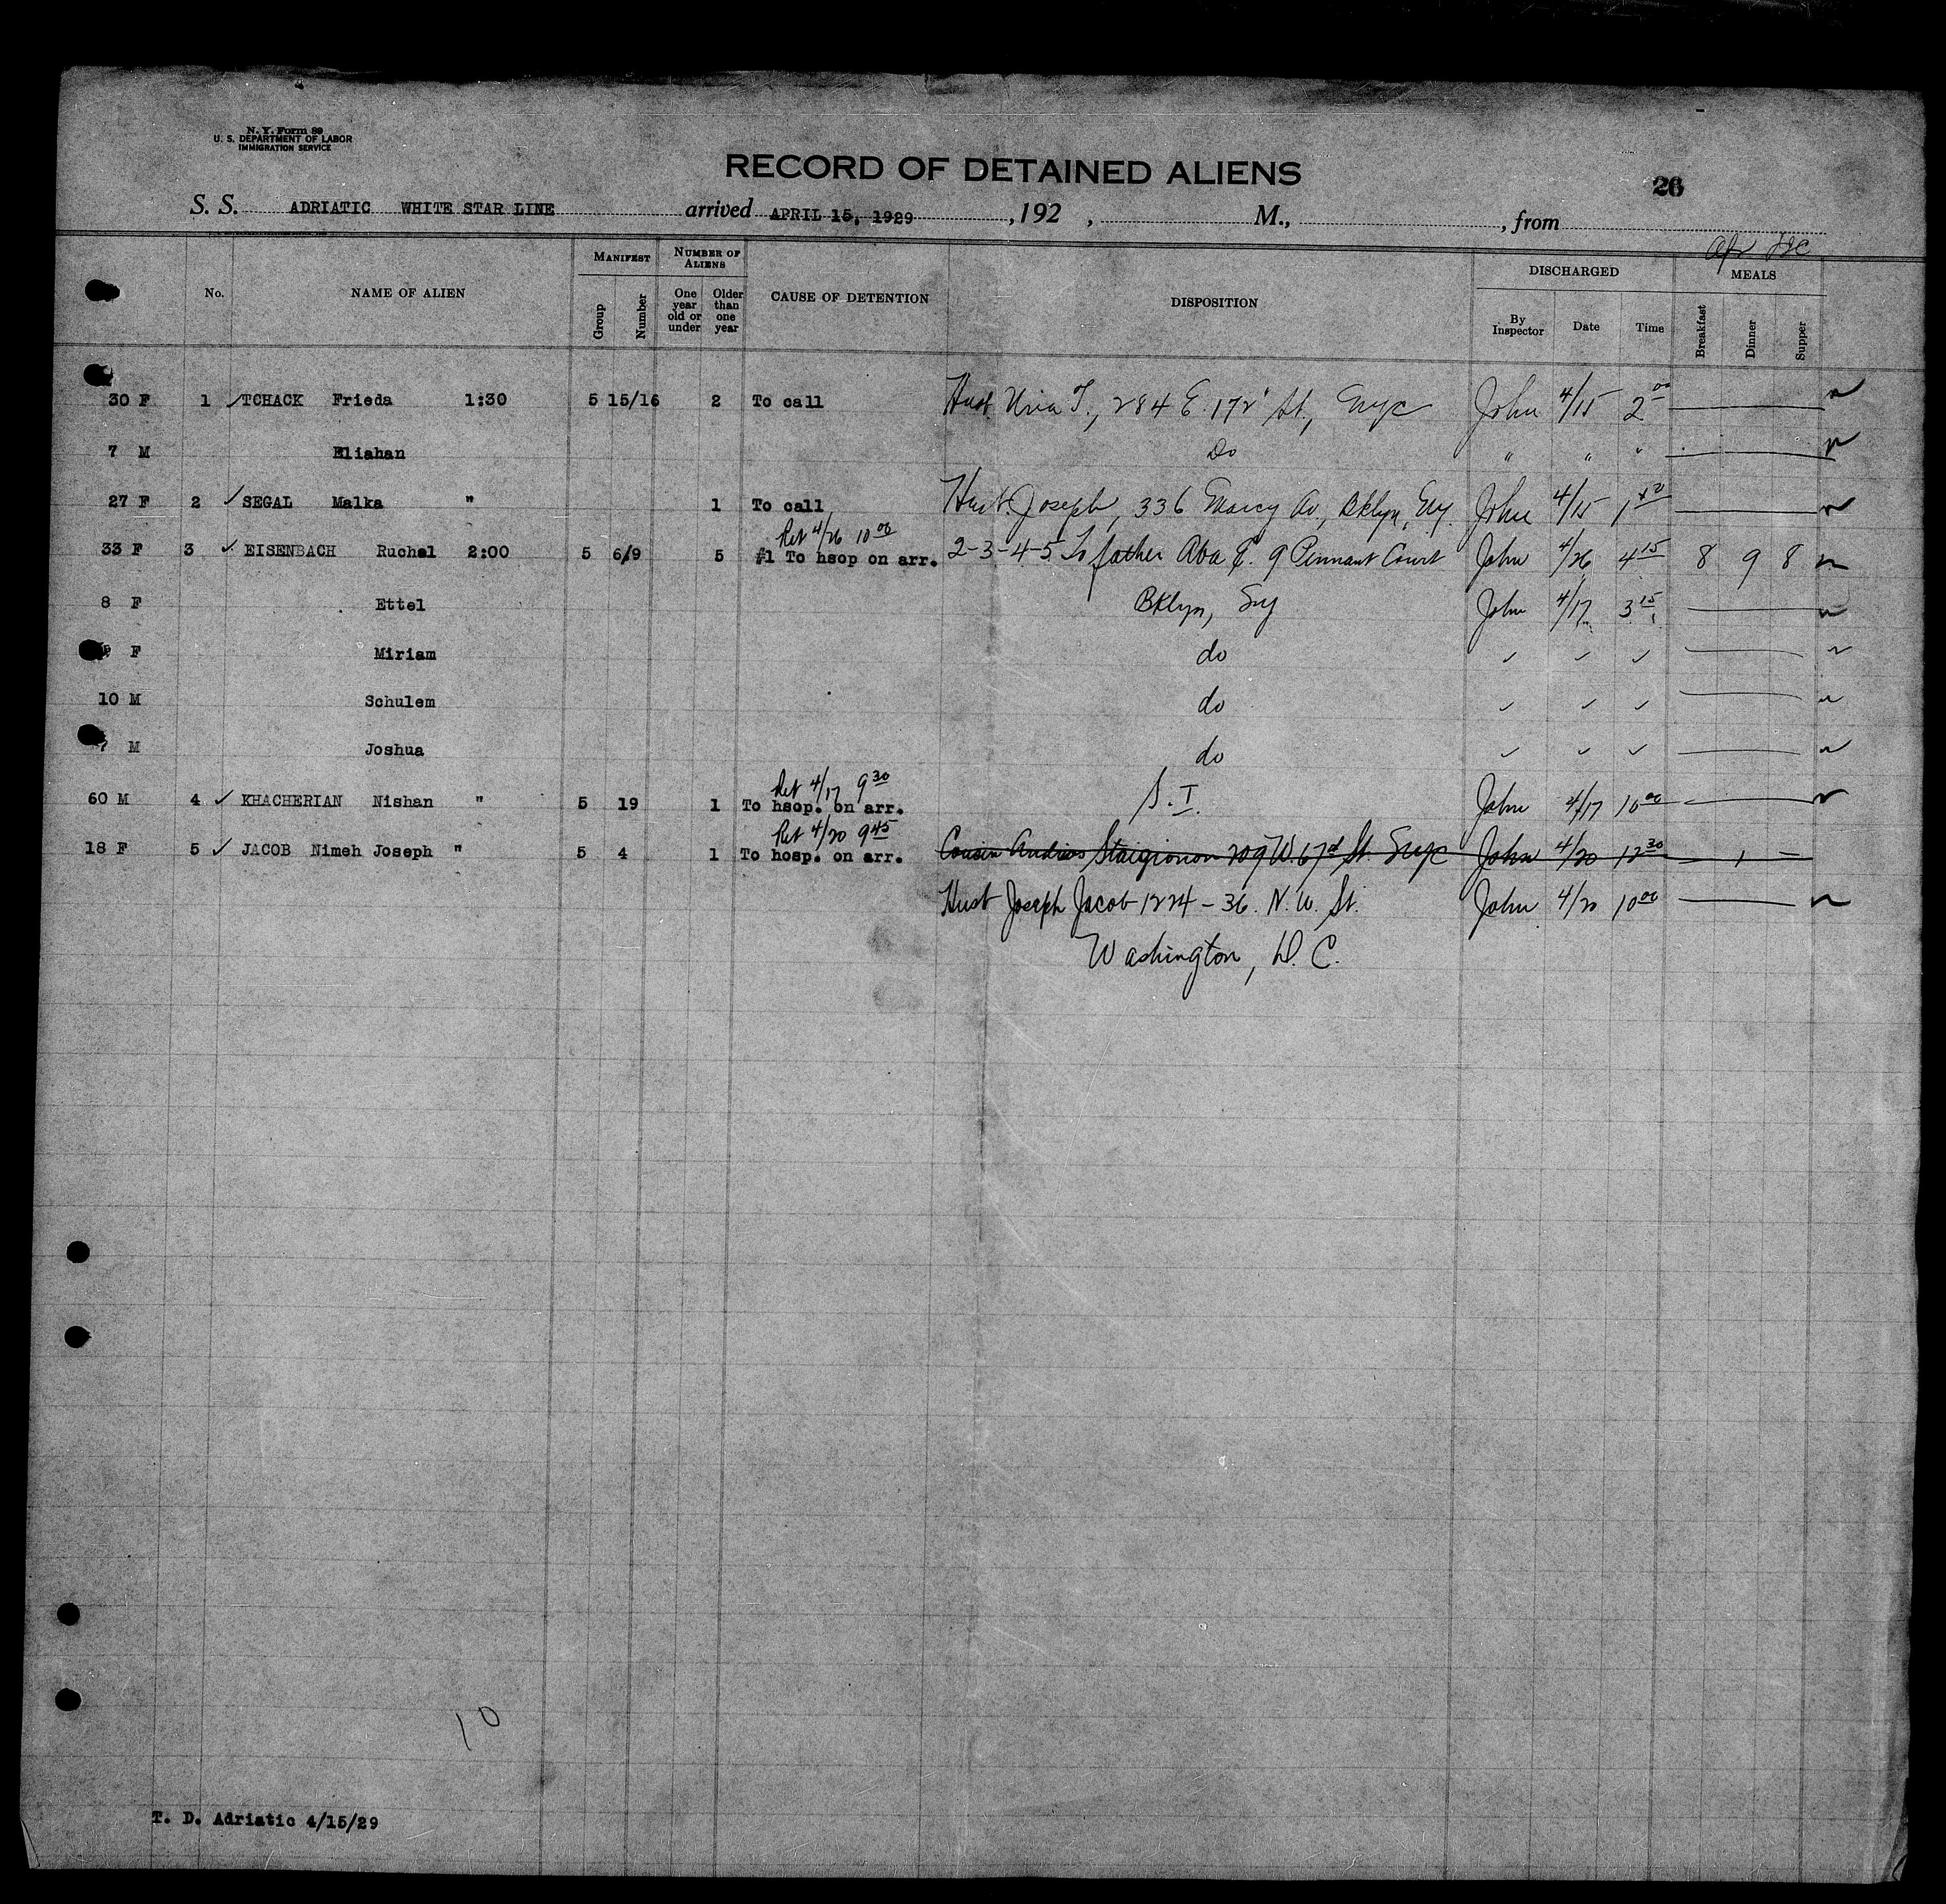 N. Y. Form 89
U. S. DEPARTMENT OF LABOR
IMMIGRATION SERVICE
RECORD OF DETAINED ALIENS
26
S. S. ADRIATIC WHITE STAR LINE arrived APRIL 15, 1929 , 192 , M., , from
No. NAME OF ALIEN MANIFEST Group Number NUMBER OF ALIENS One year old or under Older than one year CAUSE OF DETENTION DISPOSITION DISCHARGED By Inspector Date Time MEALS Breakfast Dinner Supper
30 F 1 ✓ TCHACK Frieda 1:30 5 15/16 2 To call Husb. T., 284 E. 172" St., NYC John 4/15 2 00
7 M Eliahan Do " " "
27 F 2 ✓ SEGAL Malka " 1 To call Husb. Joseph, 336 Marcy Av, Bklyn, NY. John 4/15 1
Ret 4/26 10 00
33 F 3 ✓ EISENBACH Ruchel 2:00 5 6/9 5 #1 To hsop on arr. 2-3-4-5 To father Aba E. 9 Pennant Court John 4/26 4 15 8 9 8
8 F Ettel Bklyn, NY John 4/17 3 15
F Miriam do ✓ ✓ ✓
10 M Schulem do ✓ ✓ ✓
M Joshua do ✓ ✓ ✓
Ret 4/17 9 30
60 M 4 ✓ KHACHERIAN Nishan " 5 19 1 To hsop. on arr. S. I. John 4/17 10 00
Ret 4/20 9 45
18 F 5 ✓ JACOB Nimeh Joseph " 5 4 1 To hosp. on arr. Cousin 209 W. 67 St. NYC John 4/20 12 30 — 1 —
Husb Joseph Jacob 1224 - 36. N. W. St. John 4/20 10 00
Washington, D. C.
10
T. D. Adriatic 4/15/29